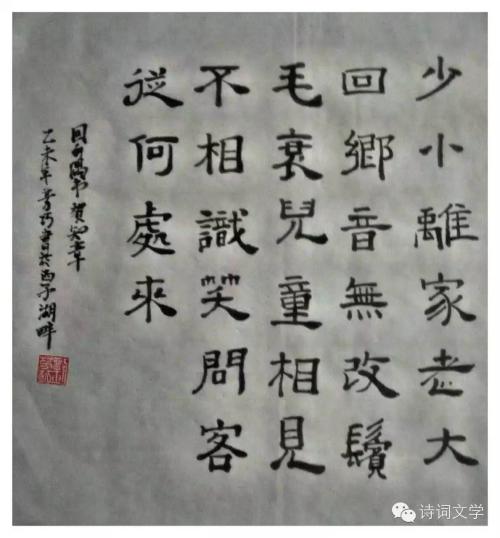 少小離家老大
回鄉音無改鬢
毛衰兒童相見
不相識笑問客
從何處來
回乡偶书賀知章
乙未年書於西子湖畔
诗词文学